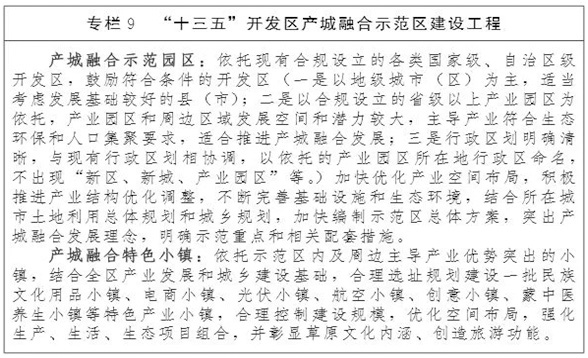 专栏 9 “十三五”开发区产城融合示范区建设工程
产城融合示范园区：依托现有合规设立的各类国家级、自治区级
开发区，鼓励符合条件的开发区（一是以地级城市（区）为主，适当
考虑发展基础较好的县（市）；二是以合规设立的省级以上产业园区为
依托，产业园区和周边区域发展空间和潜力较大，主导产业符合生态
环保和人口集聚要求，适合推进产城融合发展；三是行政区划明确清
晰，与现有行政区划相协调，以依托的产业园区所在地行政区命名，
不出现“新区、新城、产业园区”等。）加快优化产业空间布局，积极
推进产业结构优化调整，不断完善基础设施和生态环境，结合所在城
市土地利用总体规划和城乡规划，加快编制示范区总体方案，突出产
城融合发展理念，明确示范重点和相关配套措施。
产城融合特色小镇：依托示范区内及周边主导产业优势突出的小
镇，结合全区产业发展和城乡建设基础，合理选址规划建设一批民族
文化用品小镇、电商小镇、光伏小镇、航空小镇、创意小镇、蒙中医
养生小镇等特色产业小镇，合理控制建设规模，优化空间布局，强化
生产、生活、生态项目组合，并彰显草原文化内涵、创造旅游功能。